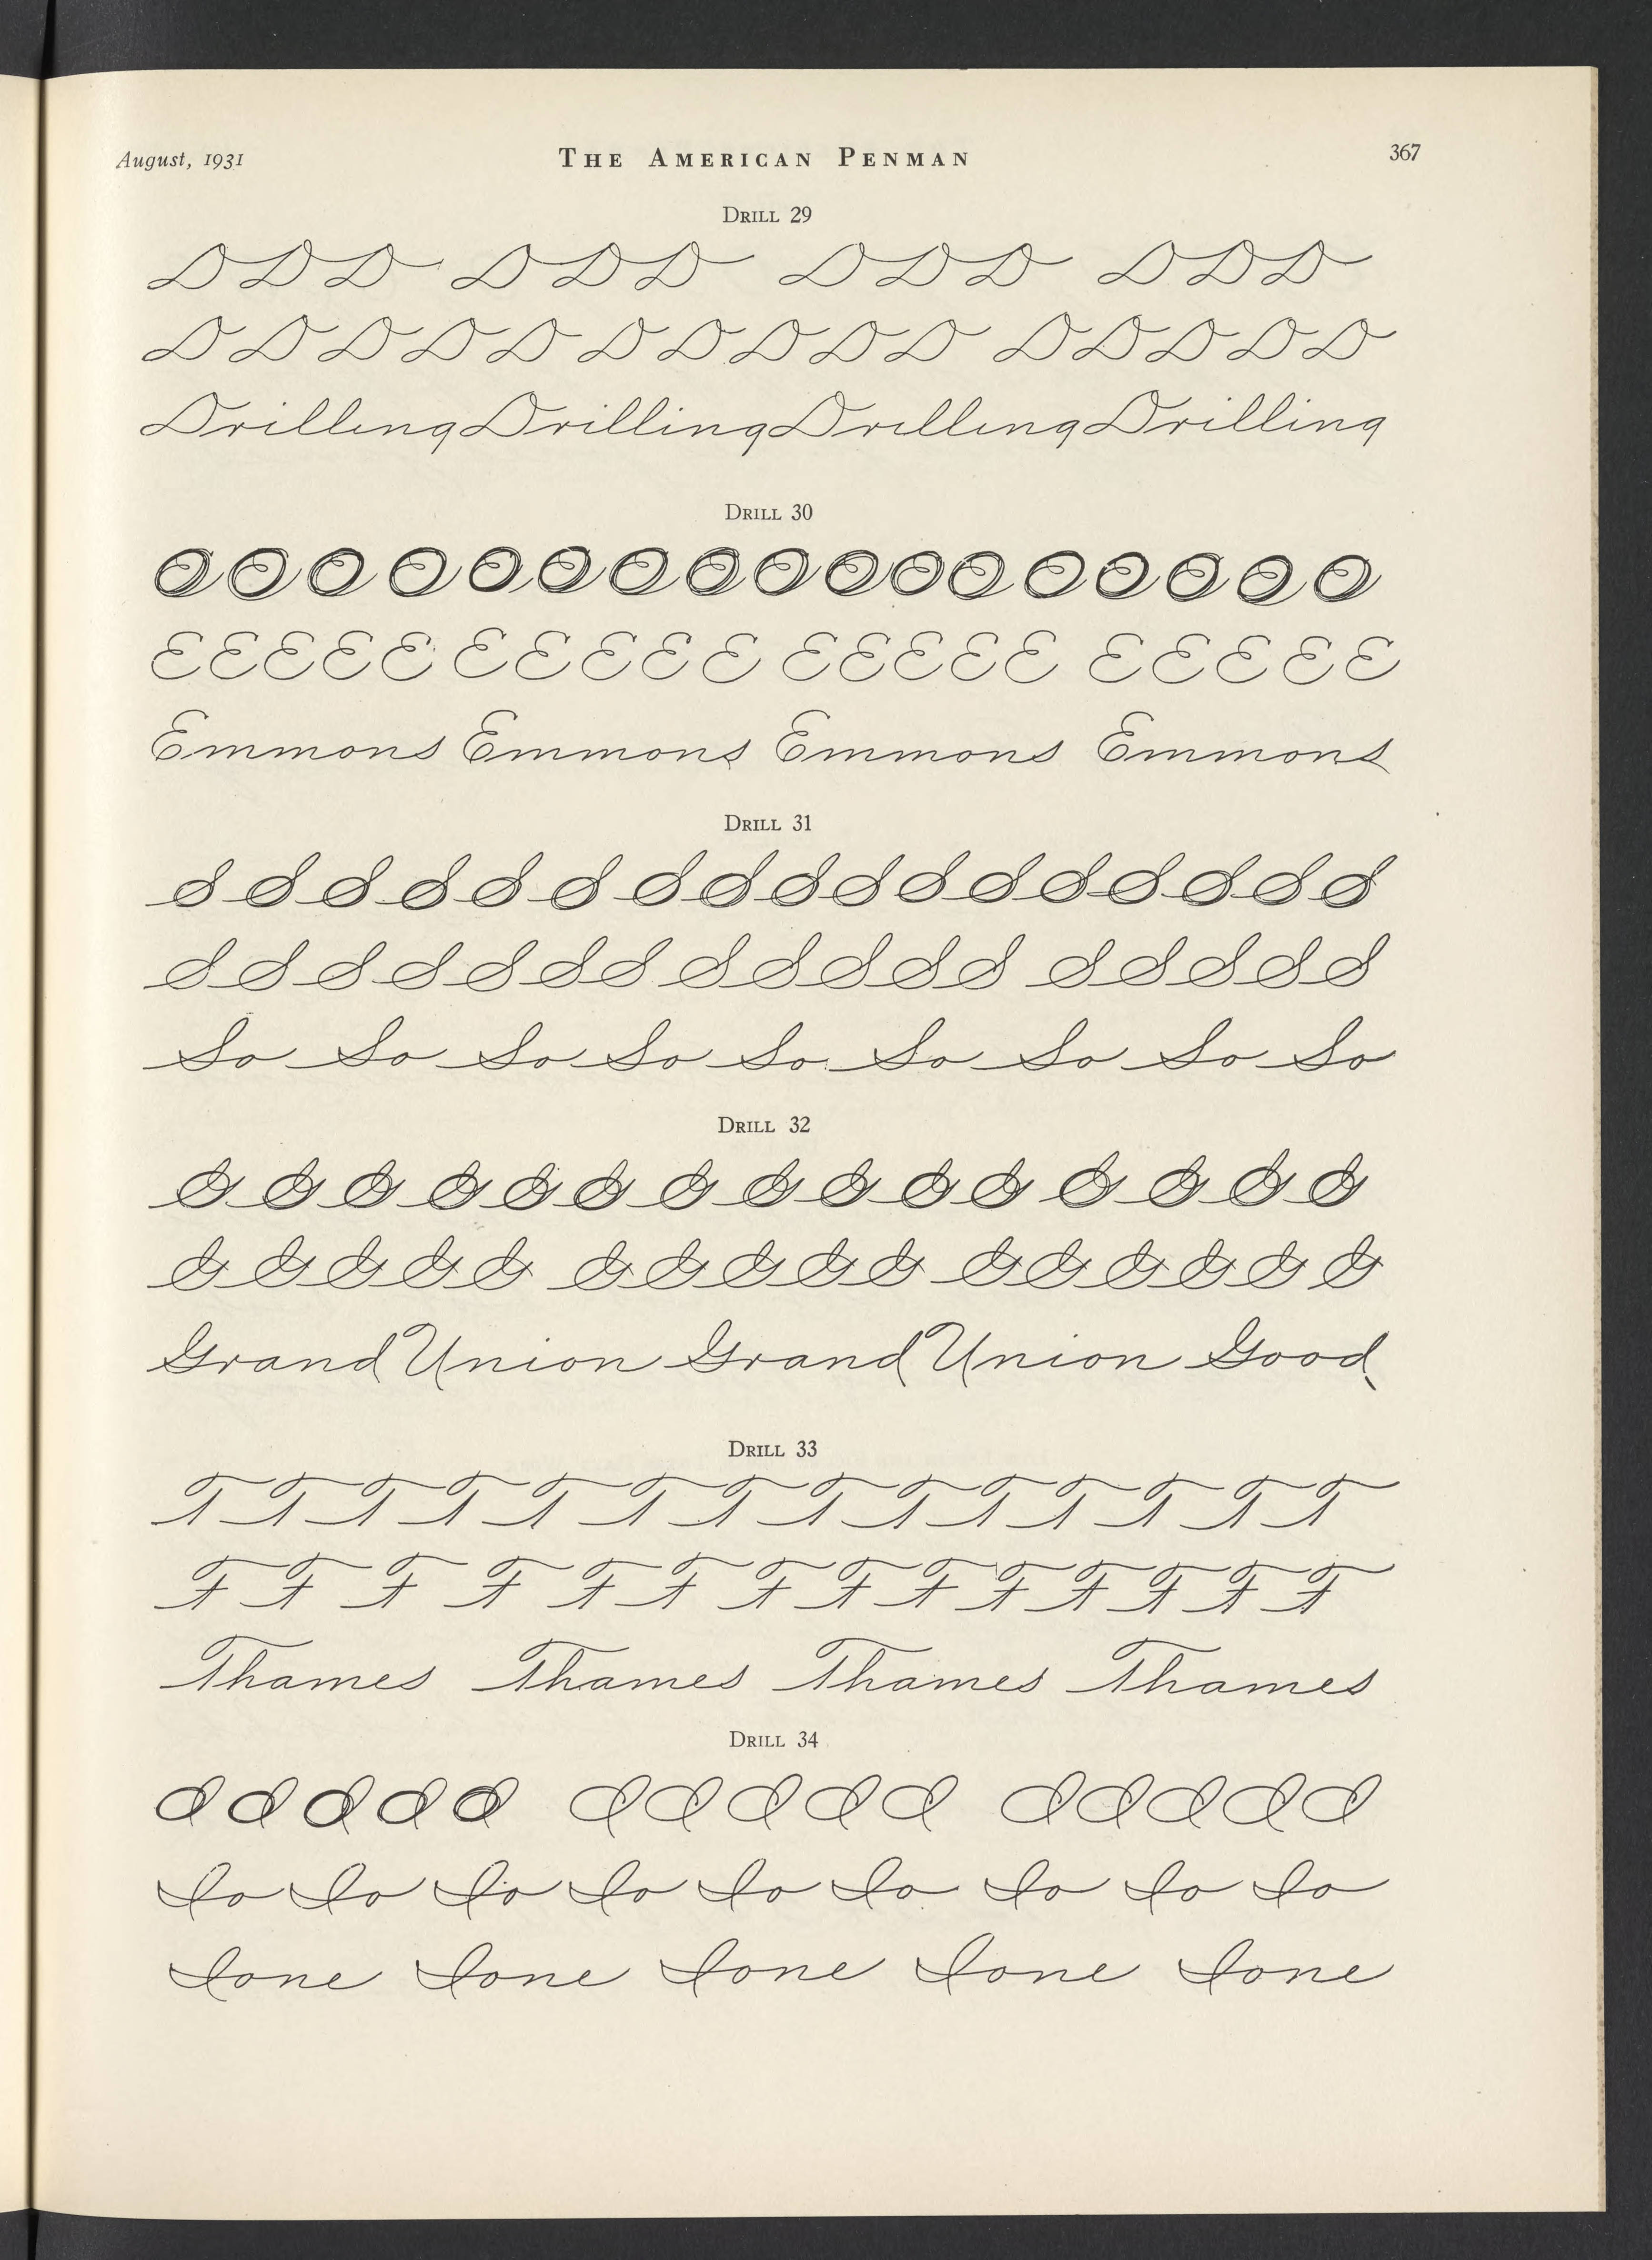 August, 1931 THE AMERICAN PENMAN 367
DRILL 29
D D D D D D D D D D D D
D D D D D D D D D D D D D D D
Drilling Drilling Drilling Drilling
DRILL 30
E E E E E E E E E E E E E E E E E
E E E E E E E E E E E E E E E E E E E E
Emmons Emmons Emmons Emmons
DRILL 31
S S S S S S S S S S S S S S S S S
S S S S S S S S S S S S S S S S S
So So So So So So So So So
DRILL 32
G G G G G G G G G G G G G G G
G G G G G G G G G G G G G G G G
Grand Union Grand Union Good
DRILL 33
T T T T T T T T T T T T T T
F F F F F F F F F F F F F F
Thames Thames Thames Thames
DRILL 34
I I I I I I I I I I I I I I I
Io Io Io Io Io Io Io Io Io
Ione Ione Ione Ione Ione